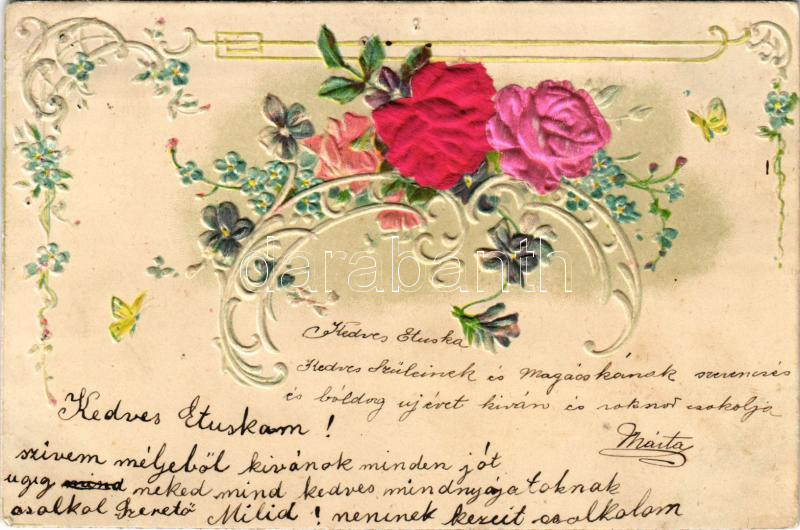 darabanth
Kedves Etuska
Kedves Szüleinek és Magácskának szerencsés
és bóldog ujévet kíván és sokszor csokolja
Márta
Kedves Etuskam!
szivem méljeből kivánok minden jót
ugig mind neked mind kedves mindnyájatoknak
csolkol Szerető Milid! neninek kezeit csolkolom